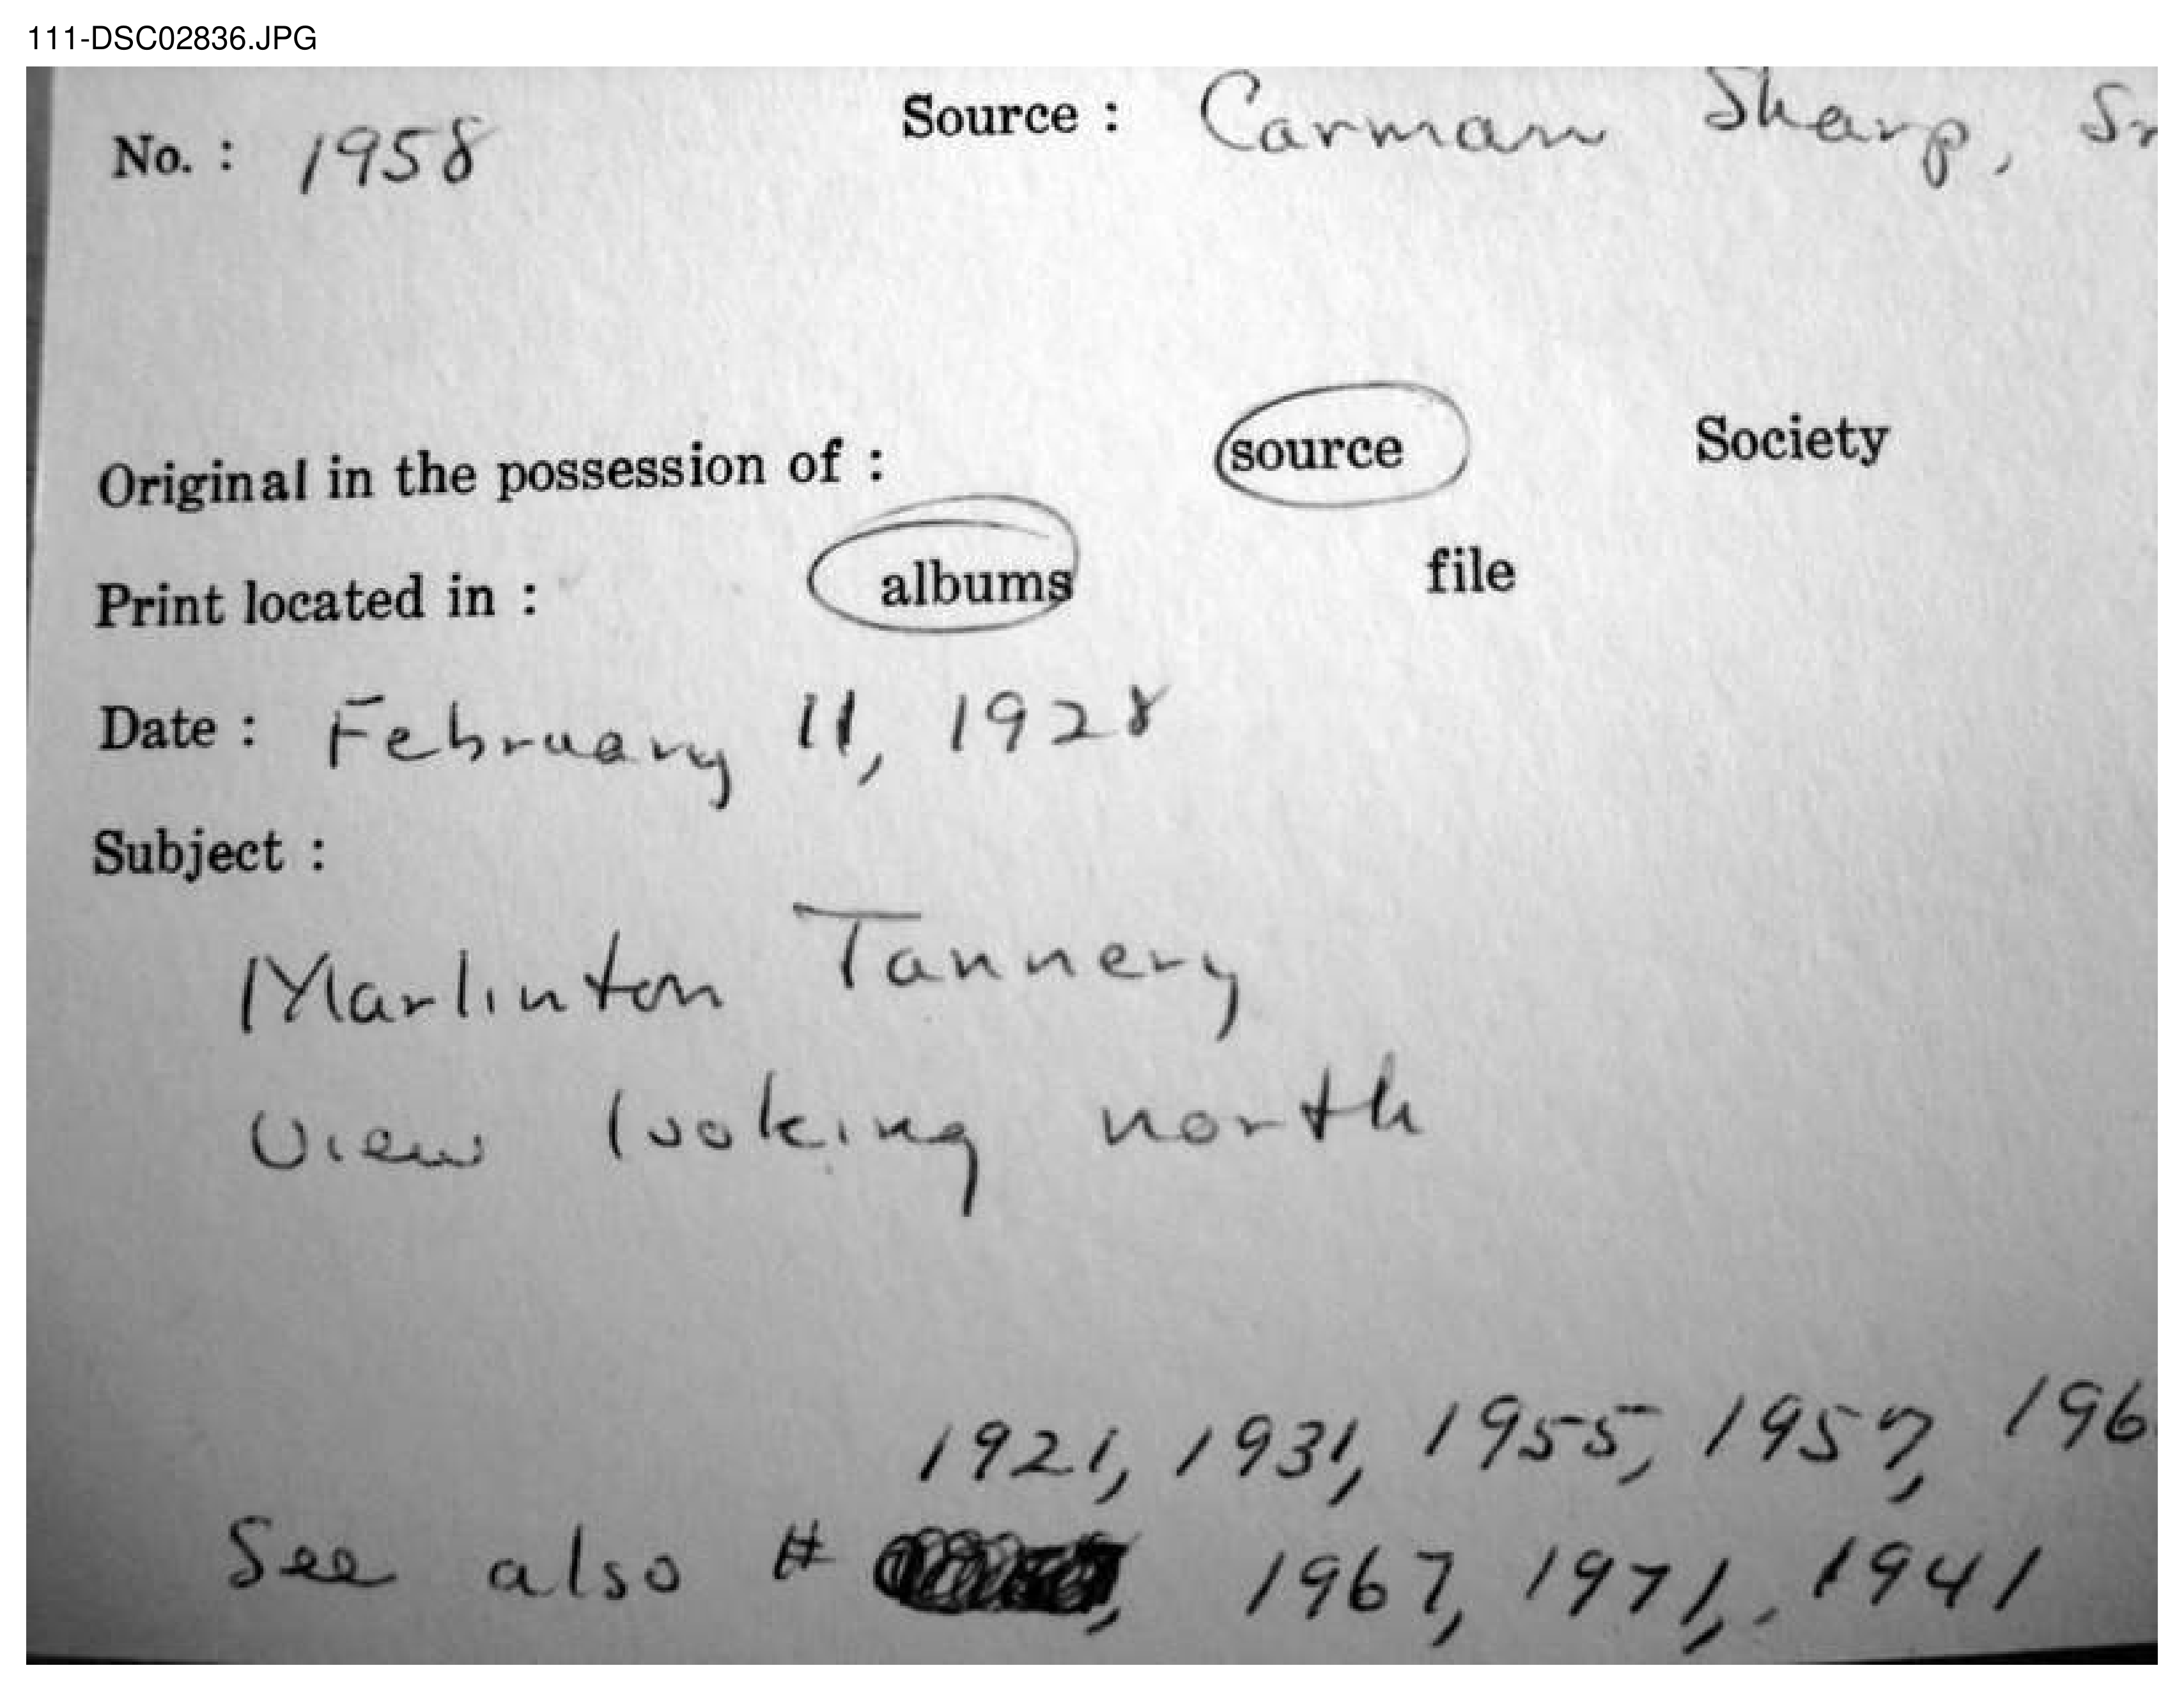 111-DSC02836.JPG
No. : 1958 Source : Carman Sharp, Sr
Original in the possession of : source Society
Print located in : albums file
Date : February 11, 1928
Subject :
Marlinton Tannery
View looking north
1921, 1931, 1955, 1957, 196
See also # 1967, 1971, 1941